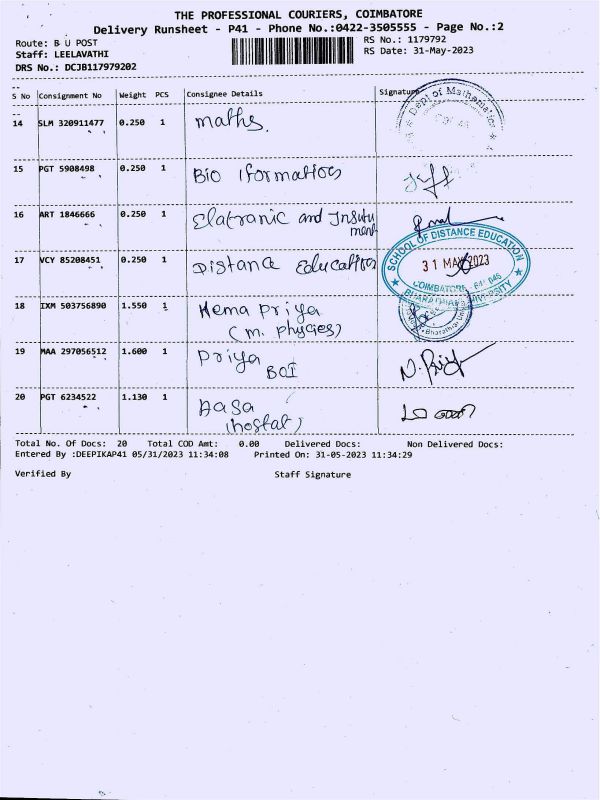 THE PROFESSIONAL COURIERS, COIMBATORE
Delivery Runsheet - P41 - Phone No.:0422-3505555 - Page No.:2
Route: B U POST
RS No.: 1179792
Staff: LEELAVATHI
RS Date: 31-May-2023
DRS No.: DCJB117979202
S No Consignment No Weight PCS Consignee Details Signature
14 SLM 320911477 0.250 1 maths.
Dept of Mathematics
15 PGT 5908498 0.250 1 Bio Iformatios
16 ART 1846666 0.250 1 Elatranic and Insutu
ment
17 VCY 85208451 0.250 1 Distance Education
SCHOOL OF DISTANCE EDUCATION
31 MAY 2023
COIMBATORE - 641 046
BHARATHIAR UNIVERSITY
18 IXM 503756890 1.550 1 Hema Priya
(m. phycies)
Bharathiar
19 MAA 297056512 1.600 1 Priya
BOI
N. Priya
20 PGT 6234522 1.130 1 Dasa
(hostal)
Total No. Of Docs: 20 Total COD Amt: 0.00 Delivered Docs: Non Delivered Docs:
Entered By :DEEPIKAP41 05/31/2023 11:34:08 Printed On: 31-05-2023 11:34:29
Verified By Staff Signature